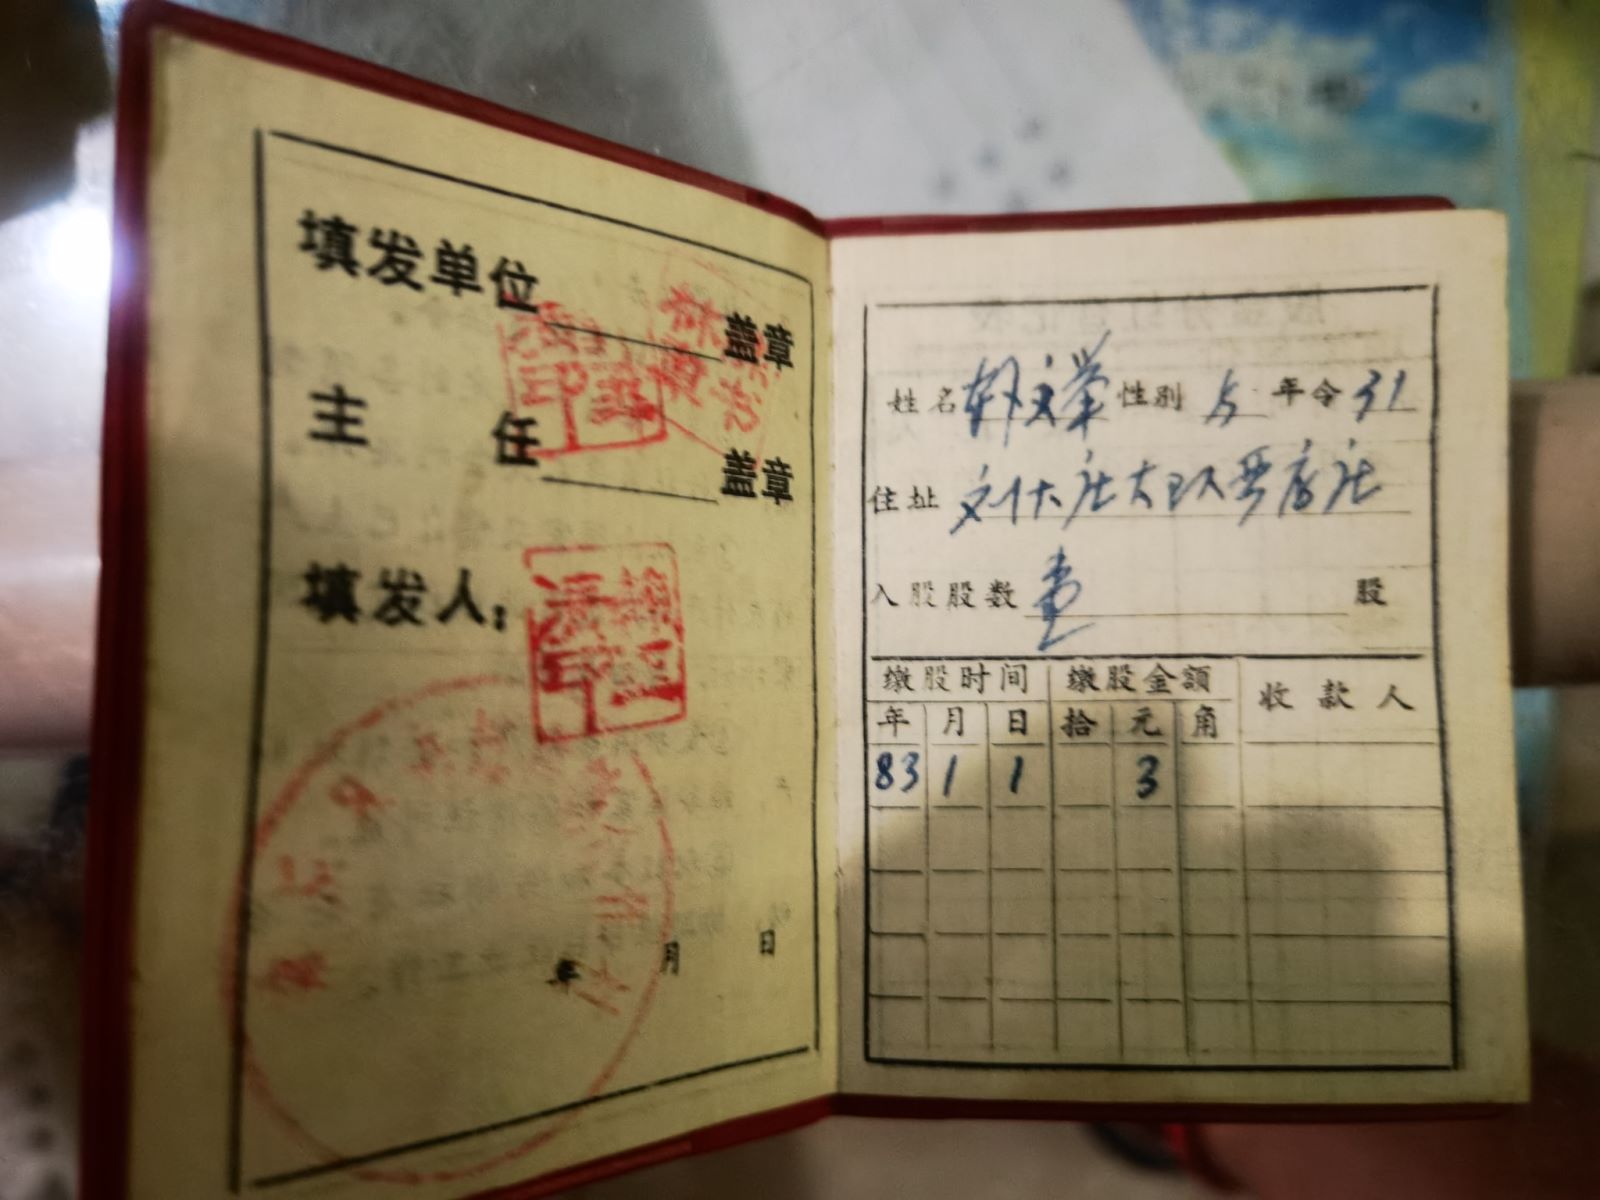 填发单位 盖章
主 任 盖章
填发人：
年 月 日
姓名 郝文举 性别 年令 31
住址 刘大庄大队晋彦庄
入股股数 壹 股
缴股时间 缴股金额 收款人
年 月 日 拾 元 角
83 1 1 3